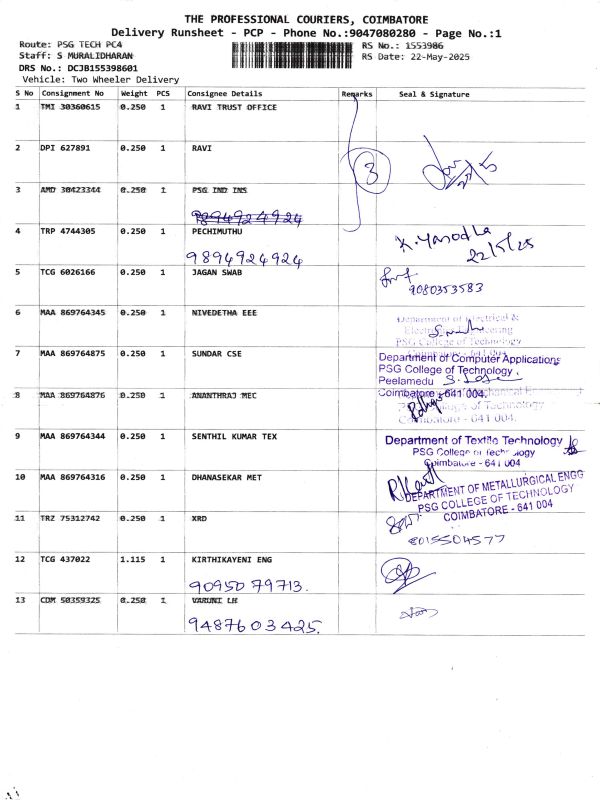 THE PROFESSIONAL COURIERS, COIMBATORE
Delivery Runsheet - PCP - Phone No.:9047080280 - Page No.:1
Route: PSG TECH PC4 RS No.: 1553986
Staff: S MURALIDHARAN RS Date: 22-May-2025
DRS No.: DCJB155398601
Vehicle: Two Wheeler Delivery
S No Consignment No Weight PCS Consignee Details Remarks Seal & Signature
1 TMI 30360615 0.250 1 RAVI TRUST OFFICE
2 DPI 627891 0.250 1 RAVI
3
3 AMD 30423344 0.250 1 PSG IND INS
9894924924
4 TRP 4744305 0.250 1 PECHIMUTHU
K. Yasodha
9894924924 22/5/25
5 TCG 6026166 0.250 1 JAGAN SWAB
9080353583
6 MAA 869764345 0.250 1 NIVEDETHA EEE
Department of Electrical &
Electronics Engineering
PSG College of Technology
Coimbatore - 641 004
7 MAA 869764875 0.250 1 SUNDAR CSE
Department of Computer Applications
PSG College of Technology
Peelamedu
Coimbatore - 641 004.
8 MAA 869764876 0.250 1 ANANTHRAJ MEC
College of Technology
Coimbatore - 641 004.
9 MAA 869764344 0.250 1 SENTHIL KUMAR TEX
Department of Textile Technology
PSG College of Technology
Coimbatore - 641 004
10 MAA 869764316 0.250 1 DHANASEKAR MET
DEPARTMENT OF METALLURGICAL ENGG
PSG COLLEGE OF TECHNOLOGY
COIMBATORE - 641 004
11 TRZ 75312742 0.250 1 XRD
8015504577
12 TCG 437022 1.115 1 KIRTHIKAYENI ENG
9095079713.
13 CDM 50359325 0.250 1 VARUNI LH
9487603425.